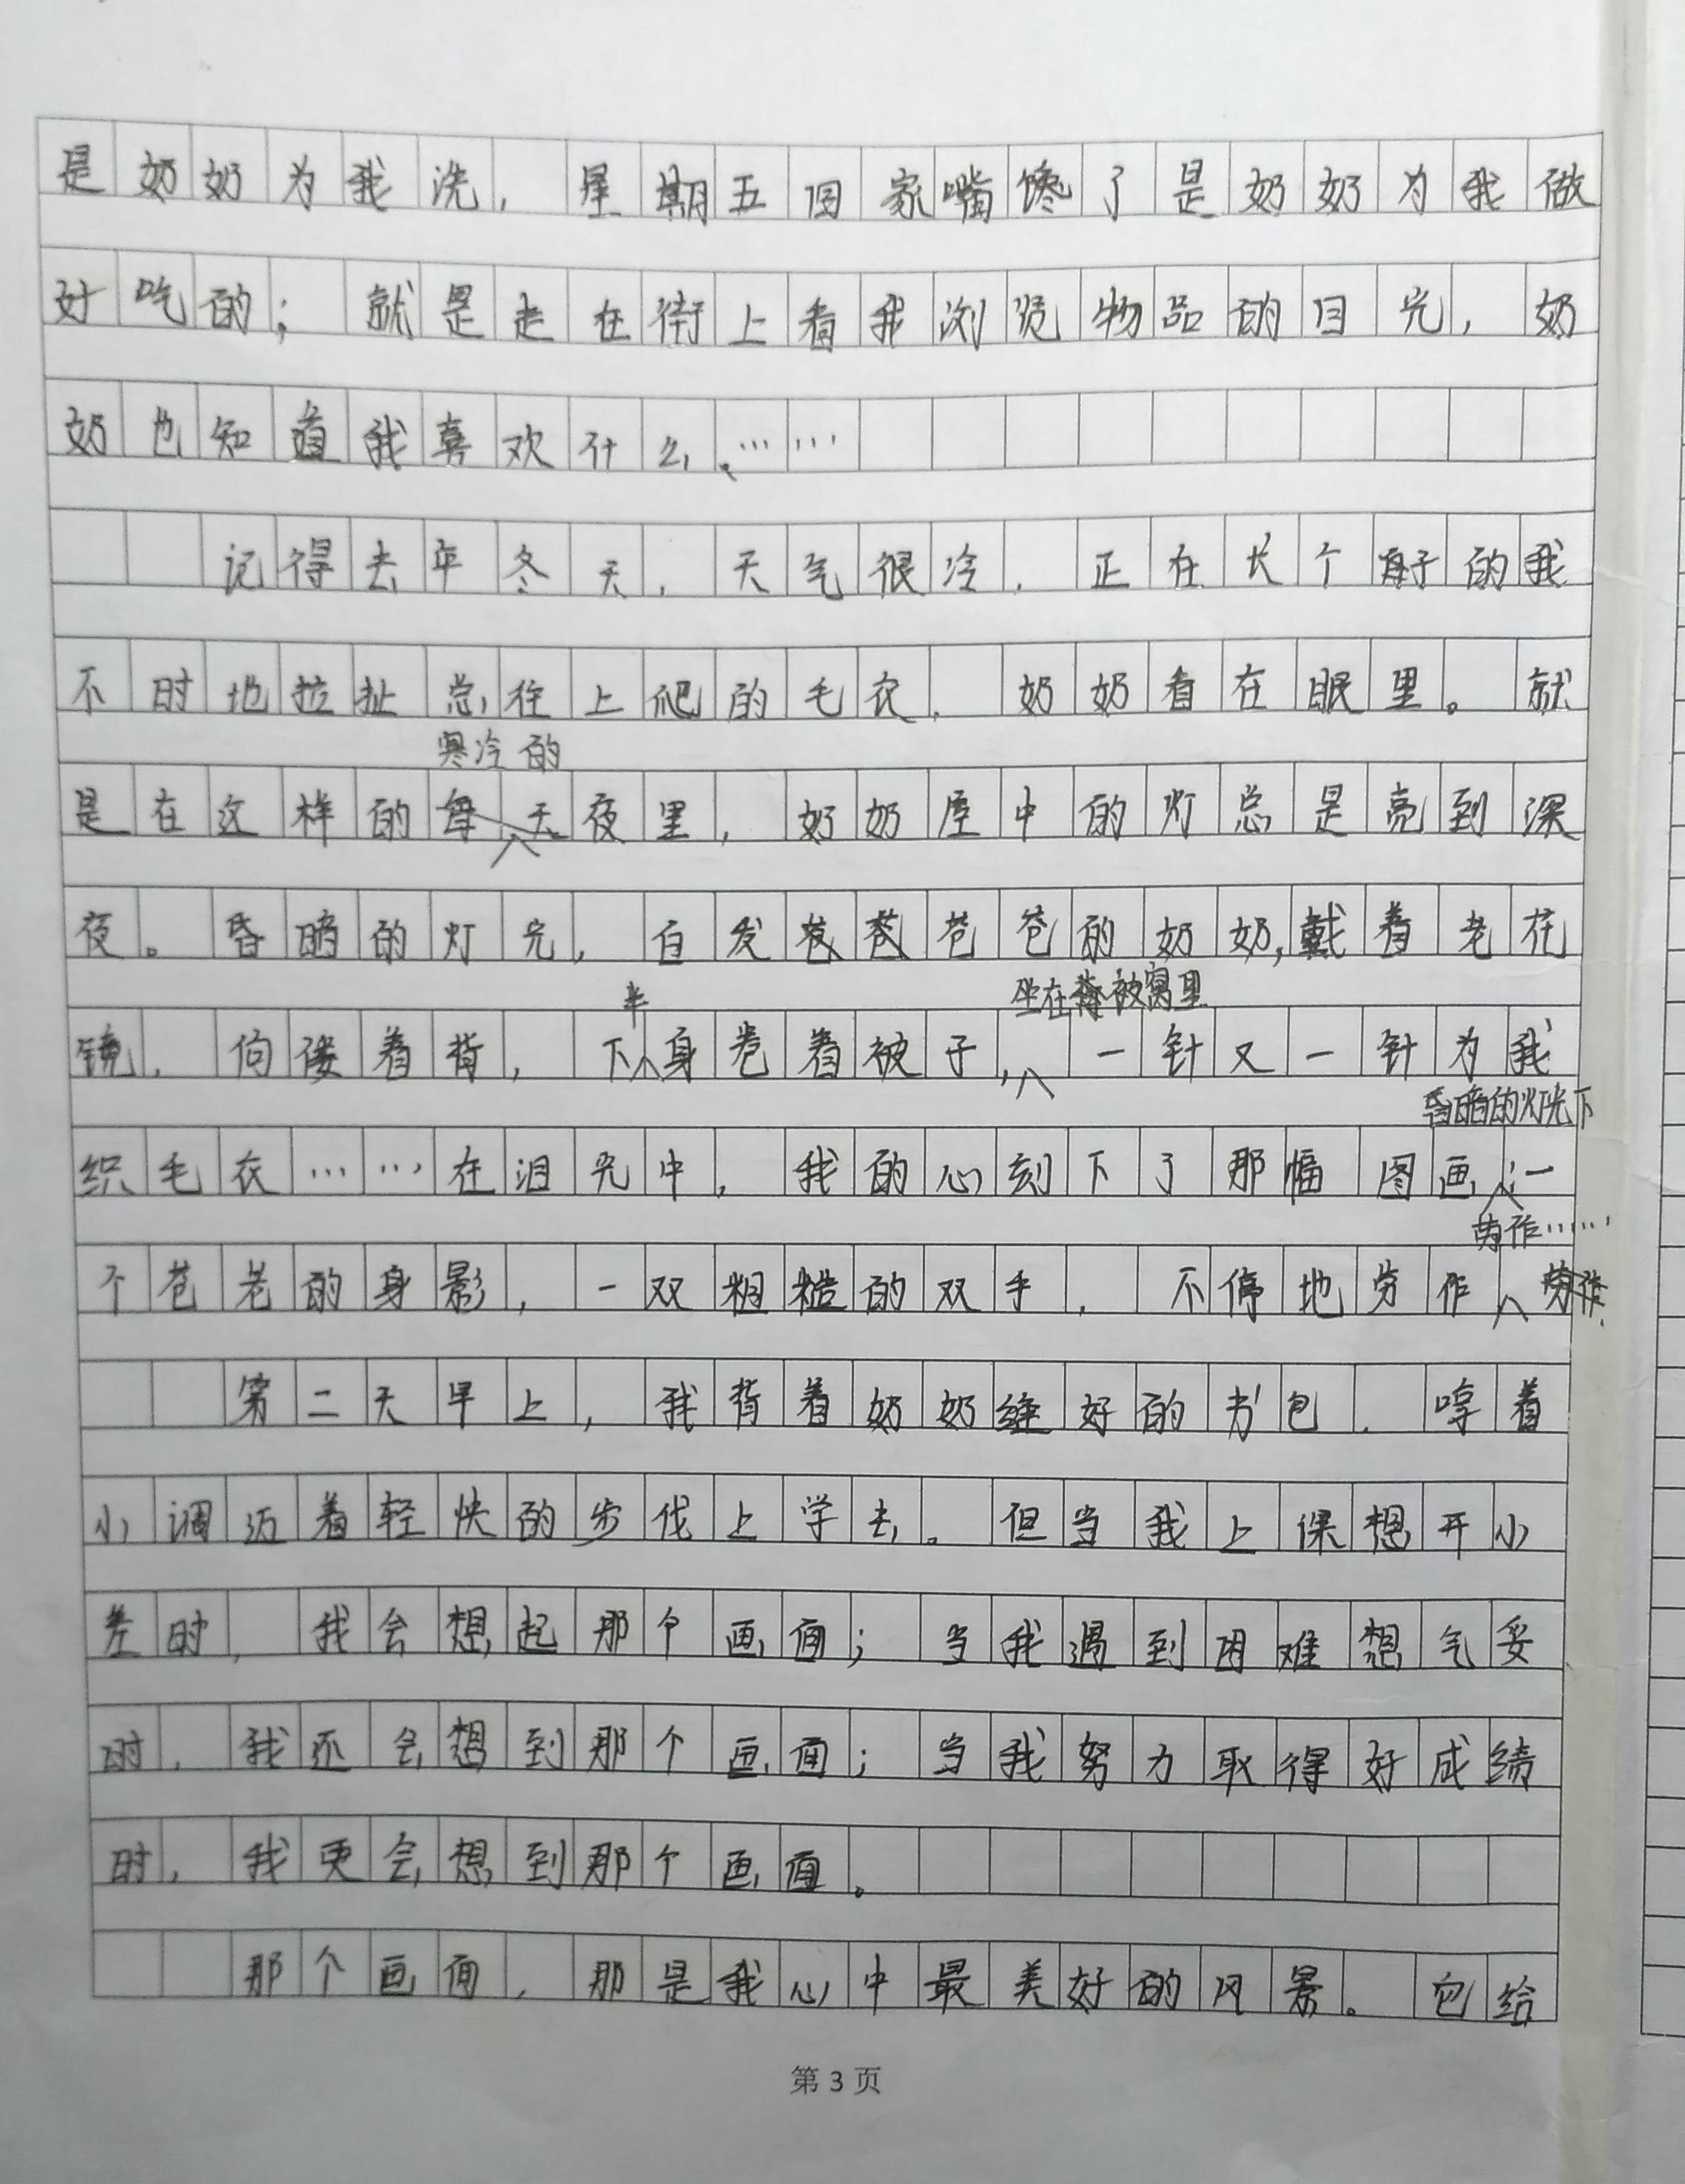 是奶奶为我洗，星期五回家嘴馋了是奶奶为我做
好吃的；就是走在街上看我浏览物品的目光，奶
奶也知道我喜欢什么、……
记得去年冬天，天气很冷，正在长个的我
不时地拉扯总往上爬的毛衣，奶奶看在眼里。就
寒冷的
是在这样的每天夜里，奶奶屋中的灯总是亮到深
夜。昏暗的灯光，白发苍苍的奶奶,戴着老花
半 坐在被窝里
镜，佝偻着背，下身卷着被子，一针又一针为我
昏暗的灯光下
织毛衣……在泪光中，我的心刻下了那幅图画：一
劳作……
个苍老的身影，一双粗糙的双手，不停地劳作
第二天早上，我背着奶奶缝好的书包，哼着
小调迈着轻快的步伐上学去。但当我上课想开小
差时，我会想起那个画面；当我遇到困难想气妥
时，我还会想到那个画面；当我努力取得好成绩
时，我更会想到那个画面。
那个画面，那是我心中最美好的风景。它给
第3页